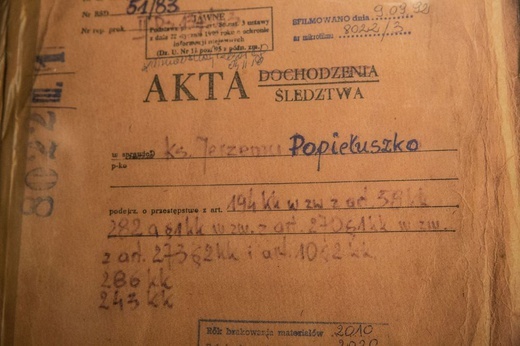 Nr RSD 51/83
Nr rep. prok.
JAWNE
z dnia 22 stycznia 1999 roku o ochronie
informacji niejawnych
(Dz. U. Nr 11 poz. 95 z późn. zm.)
SFILMOWANO dnia 9.03.92
w mikrofilm 8022/3
8022/II
AKTA DOCHODZENIA
ŚLEDZTWA
w sprawie ks. Jerzemu Popiełuszko
p-ko
podejrz. o przestępstwo z art. 194 kk w zw z art 58 kk
282 a §1 kk w zw. z art. 270 §1 kk w zw.
z art. 273 §2 kk i art. 10 §2 kk.
286 kk
243 kk
Rok brakowania materiałów 2010
2020